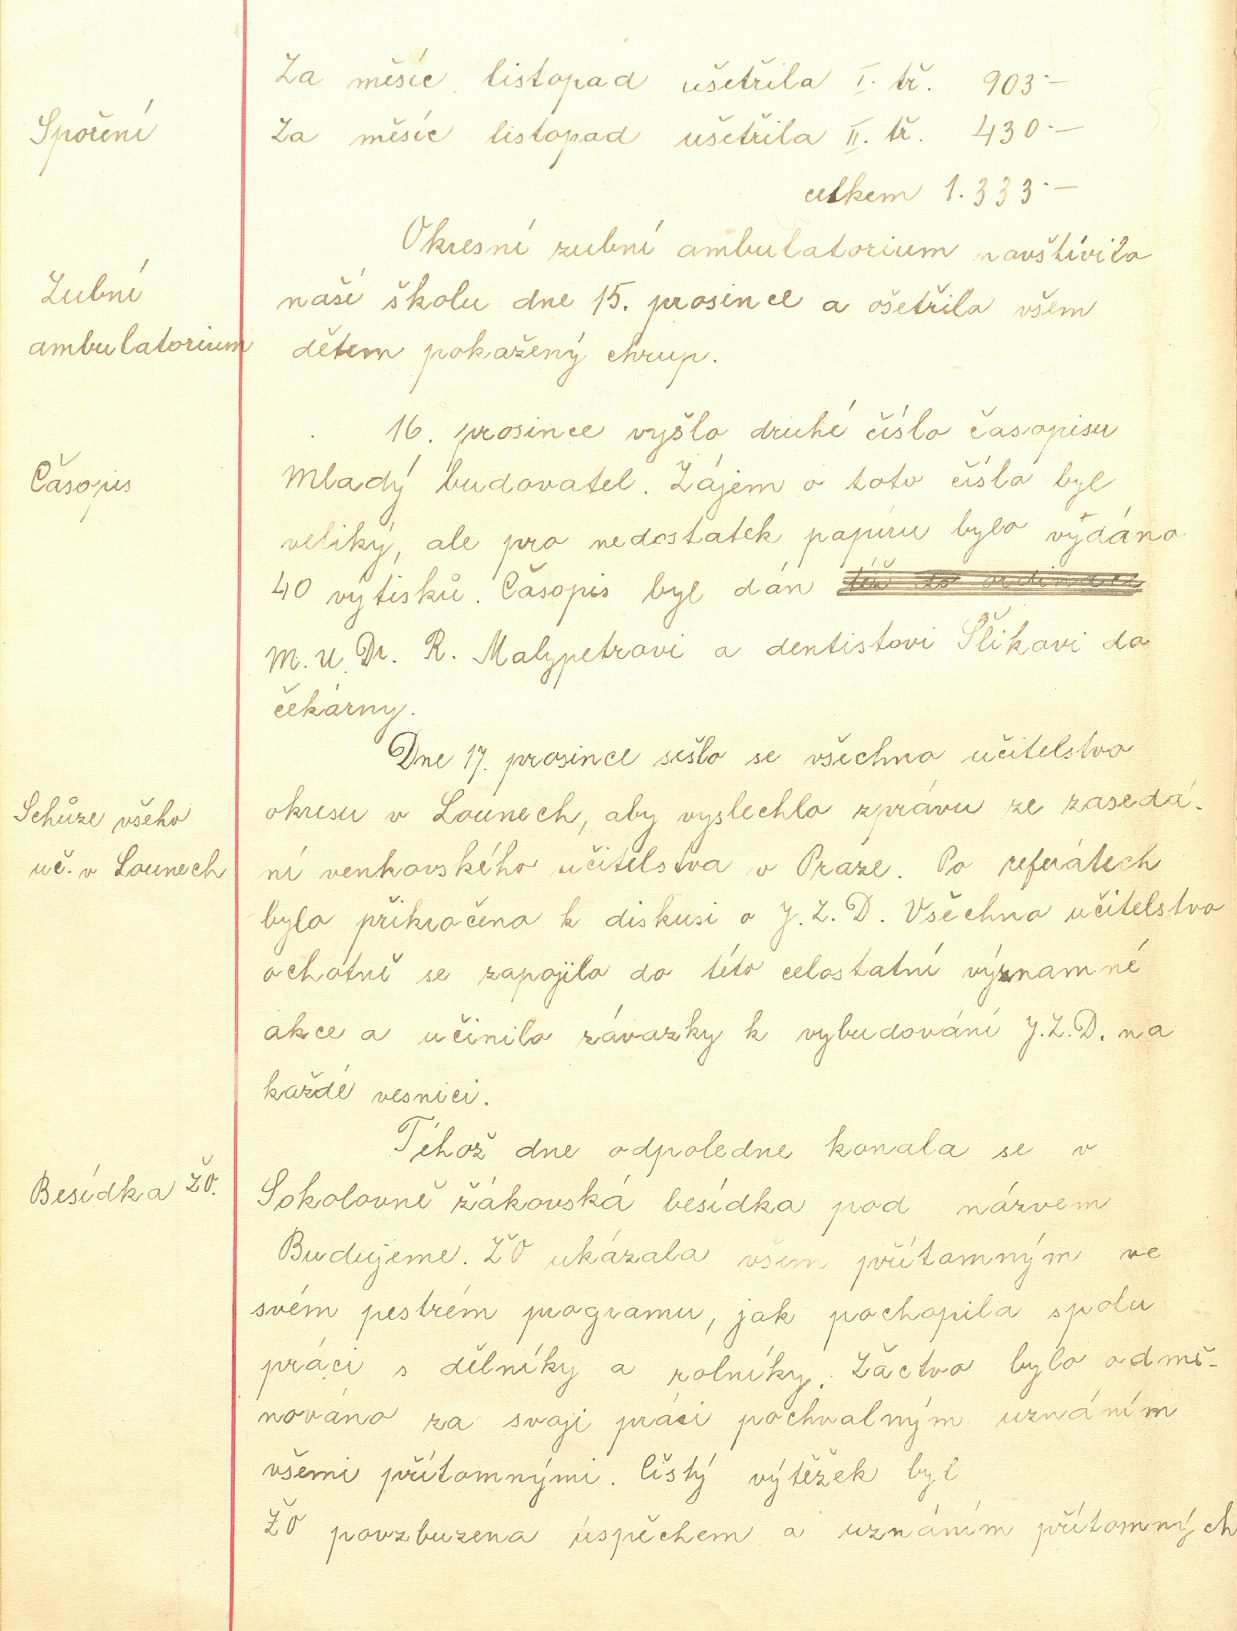 Za měsíc listopad ušetřila I. tř. 903·—
Spoření
Za měsíc listopad ušetřila II. tř. 430·—
celkem 1.333·—
Okresní zubní ambulatorium navštívilo
Zubní
naši školu dne 15. prosince a ošetřilo všem
ambulatorium
dětem pokažený chrup.
16. prosince vyšlo druhé číslo časopisu
Časopis
Mladý budovatel. Zájem o toto číslo byl
veliký, ale pro nedostatek papíru bylo vydáno
40 výtisků. Časopis byl dán též do ordinace
M. U. Dr. R. Malypetrovi a dentistovi Šlikovi do
čekárny.
Dne 17. prosince sešlo se všechno učitelstvo
Schůze všeho
okresu v Lounech, aby vyslechlo zprávu ze zasedá-
uč. v Lounech
ní venkovského učitelstva v Praze. Po referátech
bylo přikročeno k diskusi o J.Z.D. Všechno učitelstvo
ochotně se zapojilo do této celostatní významné
akce a učinilo závazky k vybudování J.Z.D. na
každé vesnici.
Téhož dne odpoledne konala se v
Besídka ŽO.
Sokolovně žákovská besídka pod názvem
Budujeme. ŽO ukázala všem přítomným ve
svém pestrém programu, jak pochopila spolu
práci s dělníky a rolníky. Žáctvo bylo odmě-
nováno za svoji práci pochvalným uznáním
všemi přítomnými. Čistý výtěžek byl
ŽO povzbuzena úspěchem a uznáním přítomných